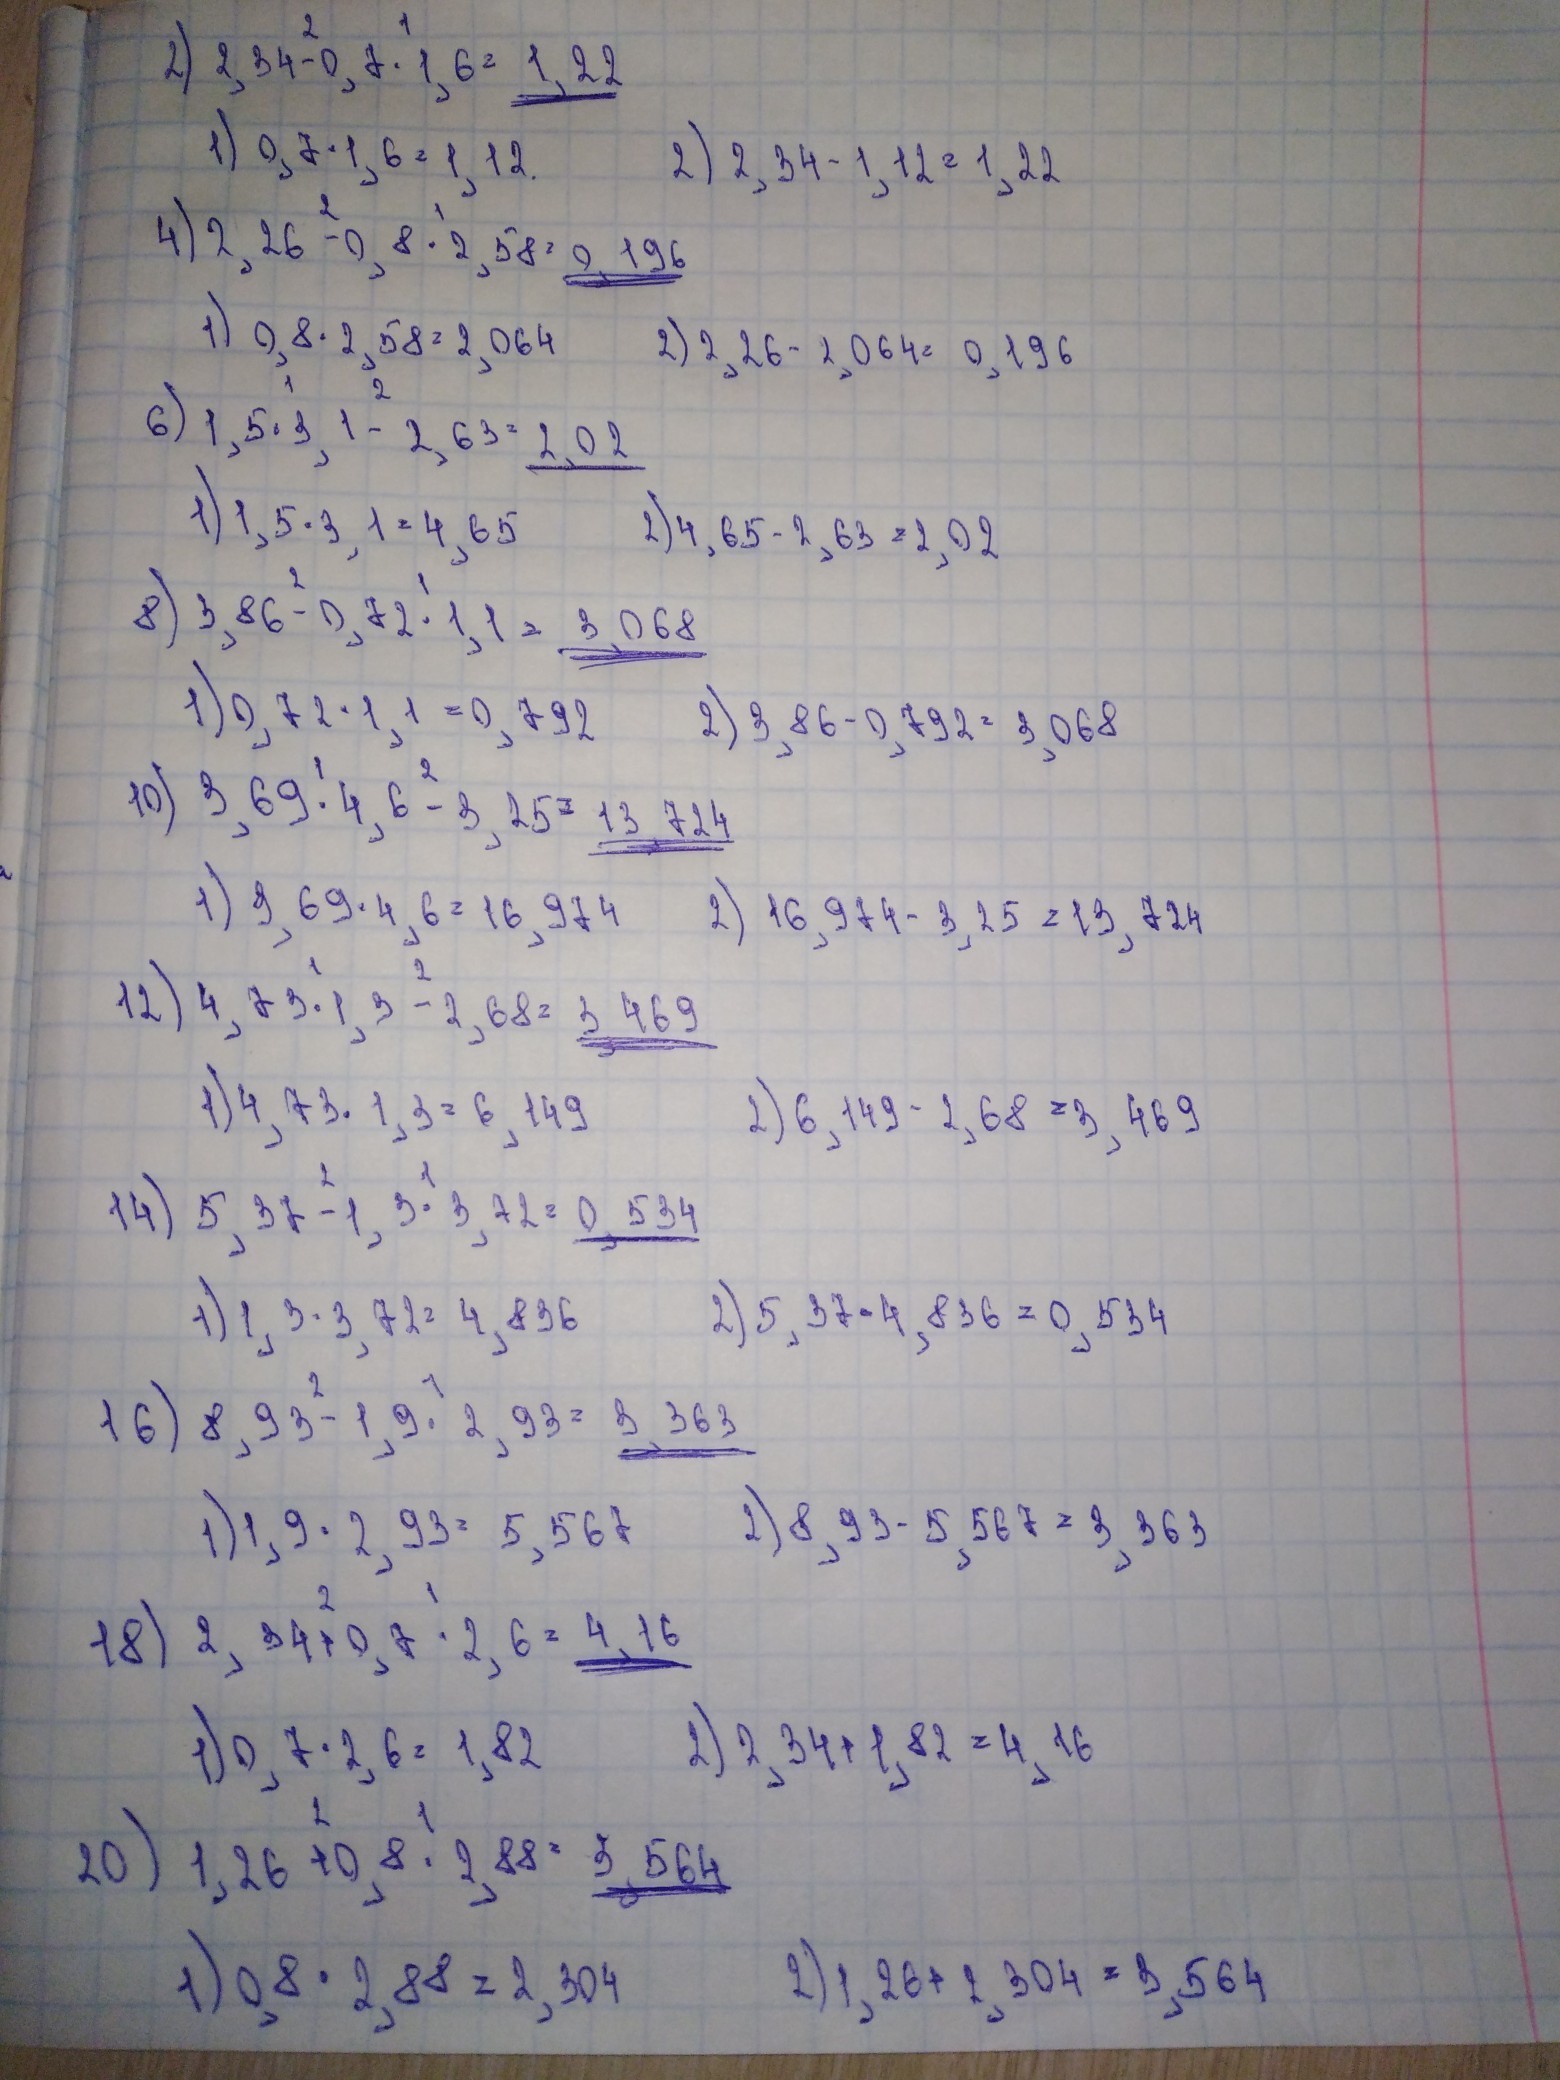 2) 2,34-0,7·1,6= 1,22
1) 0,7·1,6=1,12. 2) 2,34-1,12=1,22
4) 2,26-0,8·2,58= 0,196
1) 0,8·2,58=2,064 2) 2,26-2,064= 0,196
6) 1,5·3,1-2,63= 2,02
1) 1,5·3,1=4,65 2) 4,65-2,63=2,02
8) 3,86-0,72·1,1= 3,068
1) 0,72·1,1=0,792 2) 3,86-0,792=3,068
10) 3,69·4,6-3,25= 13,724
1) 3,69·4,6=16,974 2) 16,974-3,25=13,724
12) 4,73·1,3-2,68= 3,469
1) 4,73·1,3=6,149 2) 6,149-2,68=3,469
14) 5,37-1,3·3,72= 0,534
1) 1,3·3,72=4,836 2) 5,37-4,836=0,534
16) 8,93-1,9·2,93= 3,363
1) 1,9·2,93=5,567 2) 8,93-5,567=3,363
18) 2,34+0,7·2,6= 4,16
1) 0,7·2,6=1,82 2) 2,34+1,82=4,16
20) 1,26+0,8·2,88= 3,564
1) 0,8·2,88=2,304 2) 1,26+2,304=3,564